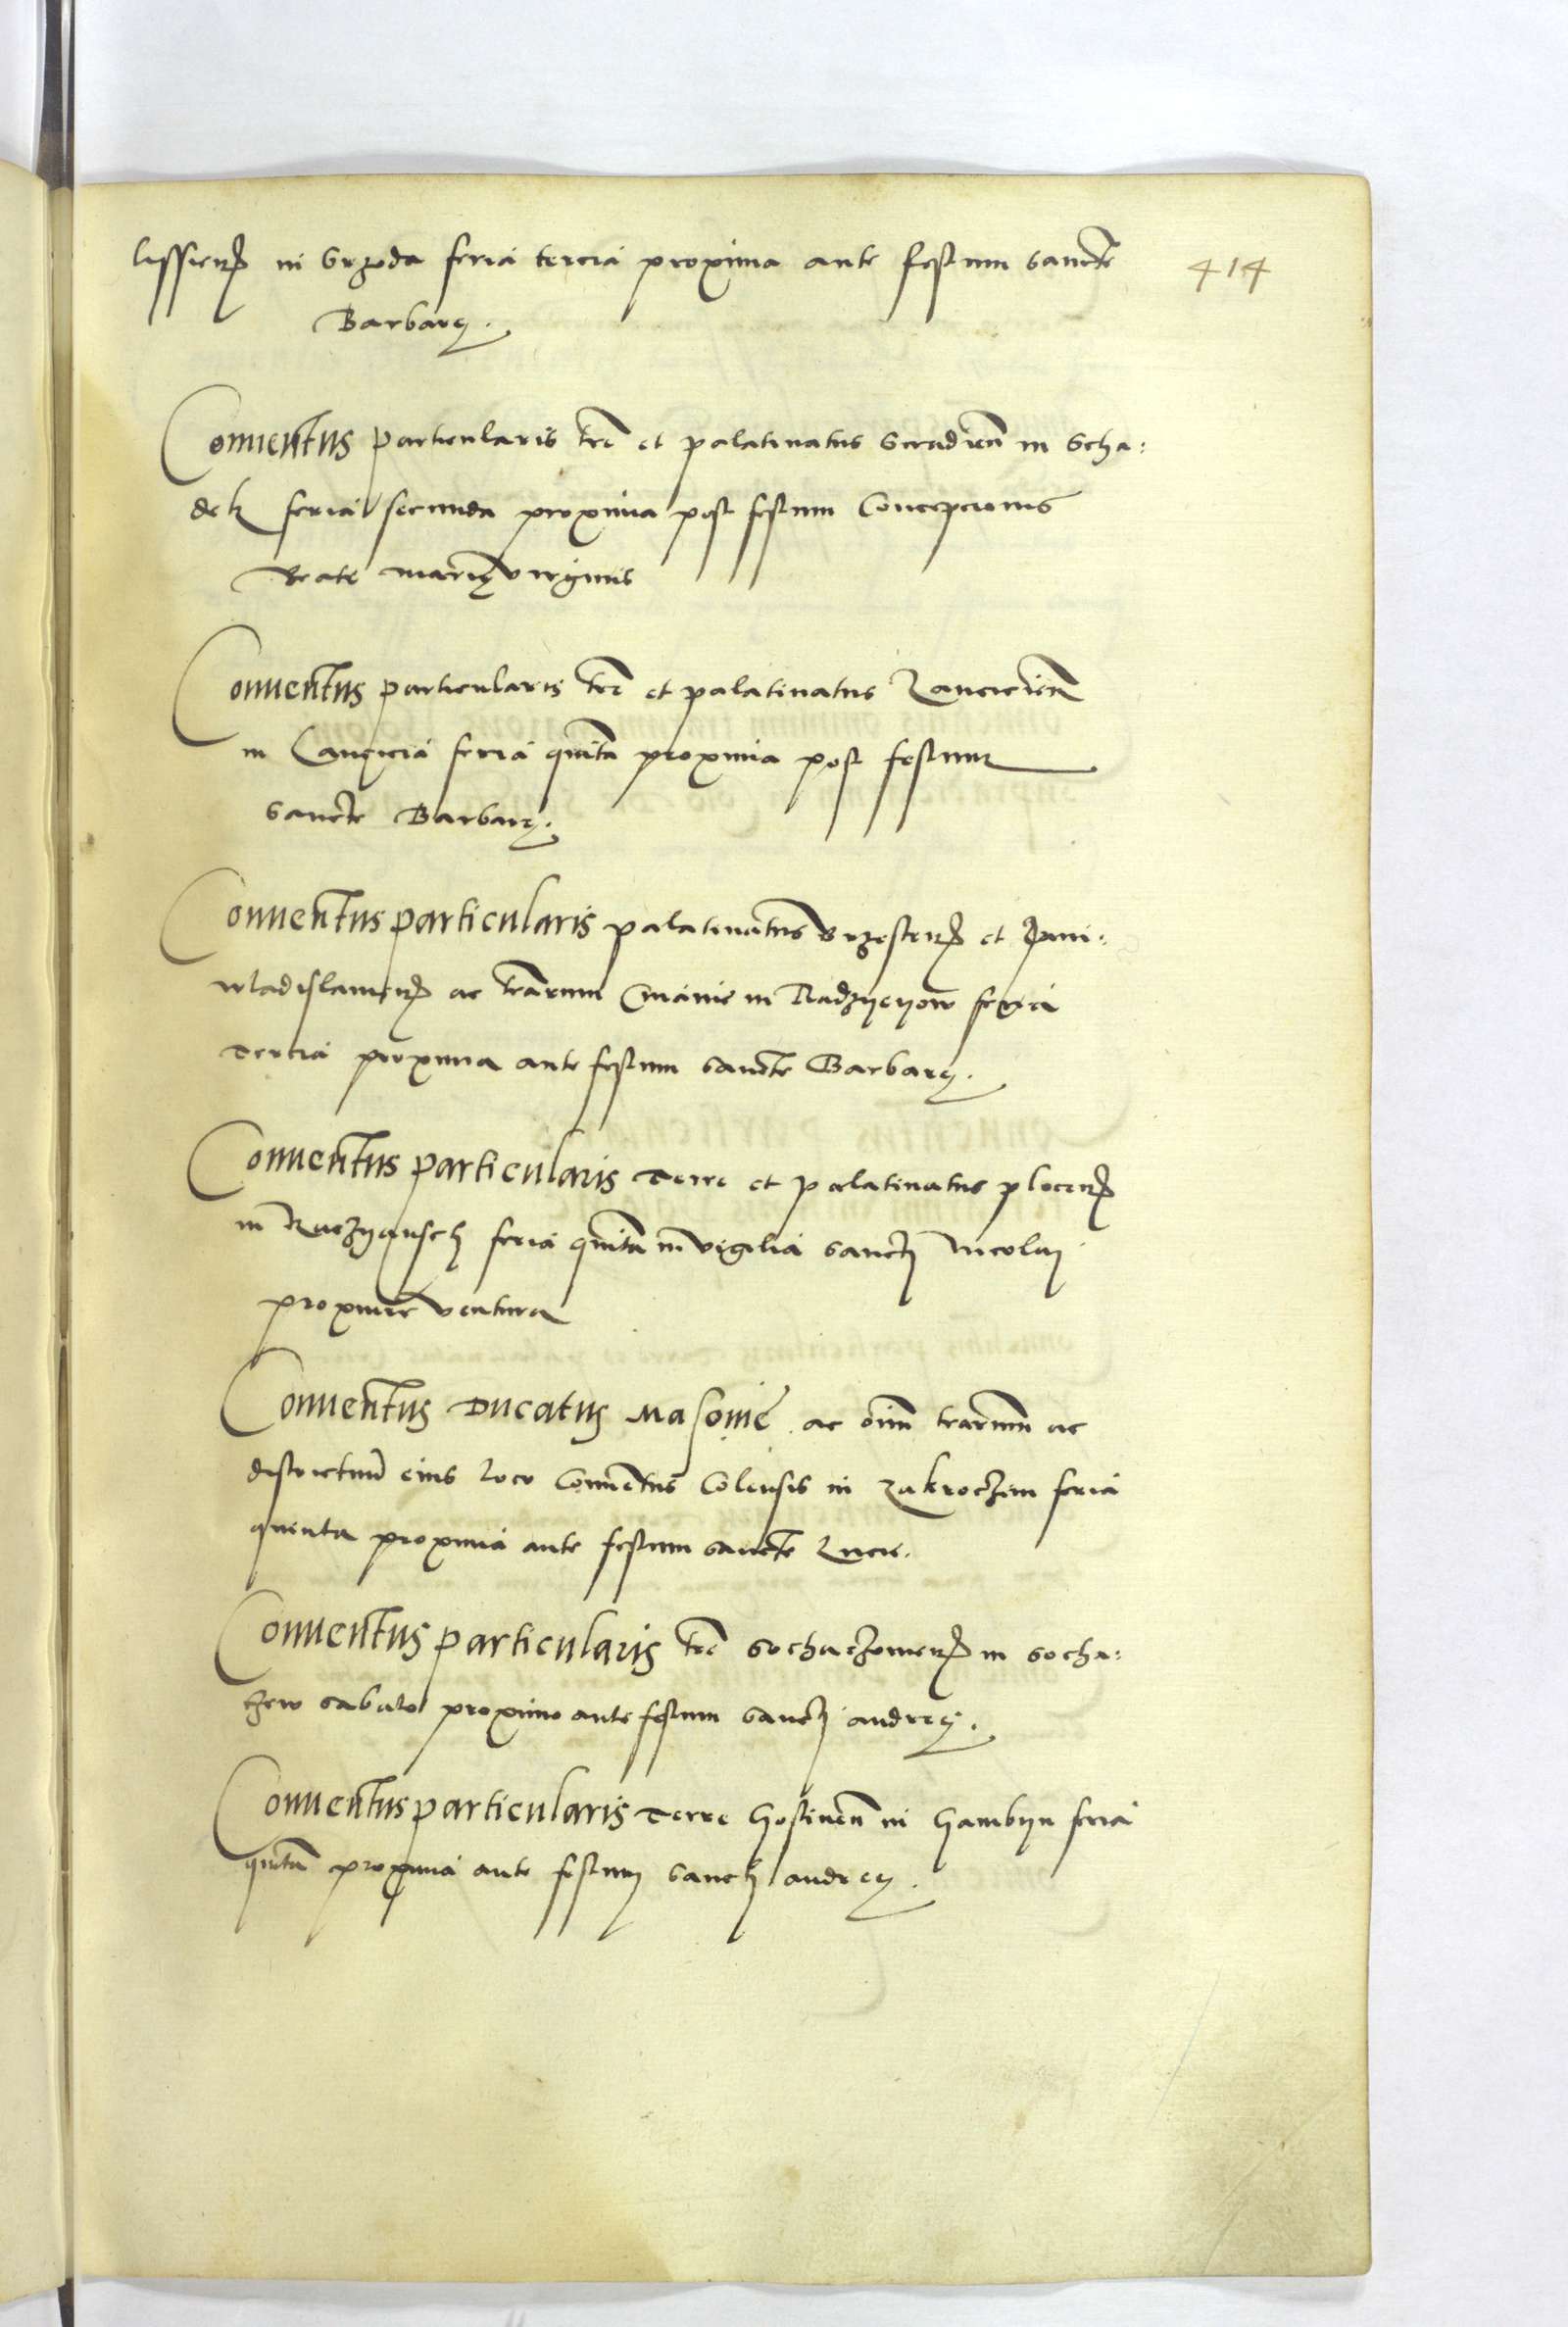 lissien in Srzoda feria tercia proxima ante festum sancte
414
Barbarę.
Conuentus particularis tre et palatinatus Siradien in Scha:
dek feria secunda proxima post festum Concepcionis
Beate marię virginis
Conuentus particularis tre et palatinatus Lancicien
in Lancicia feria quita proxima post festum
sancte Barbarę.
Conuentus particularis palatinatus brzesten et Juni:
wladislauien ac trarum Cuiauie in Radzyeyow feria
tercia proxima ante festum sancte Barbarę.
Conuentus particularis terre et palatinatus plocen
in Raczyansch feria quita in vigilia sancti Nicolai
proxime ventura
Conuentus Ducatus Masouie ac oim trarum ac
districtuum eius loco Conuentus Colensis in Zakroczim feria
quinta proxima ante festum sancte Lucie.
Conuentus particularis tre Sochaczowien in Socha:
czew sabato proximo ante festum sancti andreę.
Conuentus particularis terre Gostinen in Gambyn feria
quita proxima ante festum sancti andreę.